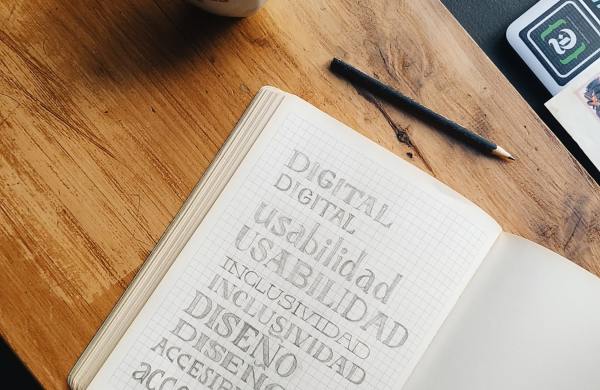 DIGITAL
DIGITAL
usabilidad
USABILIDAD
INCLUSIVIDAD
INCLUSIVIDAD
DISEÑO
DISEÑO